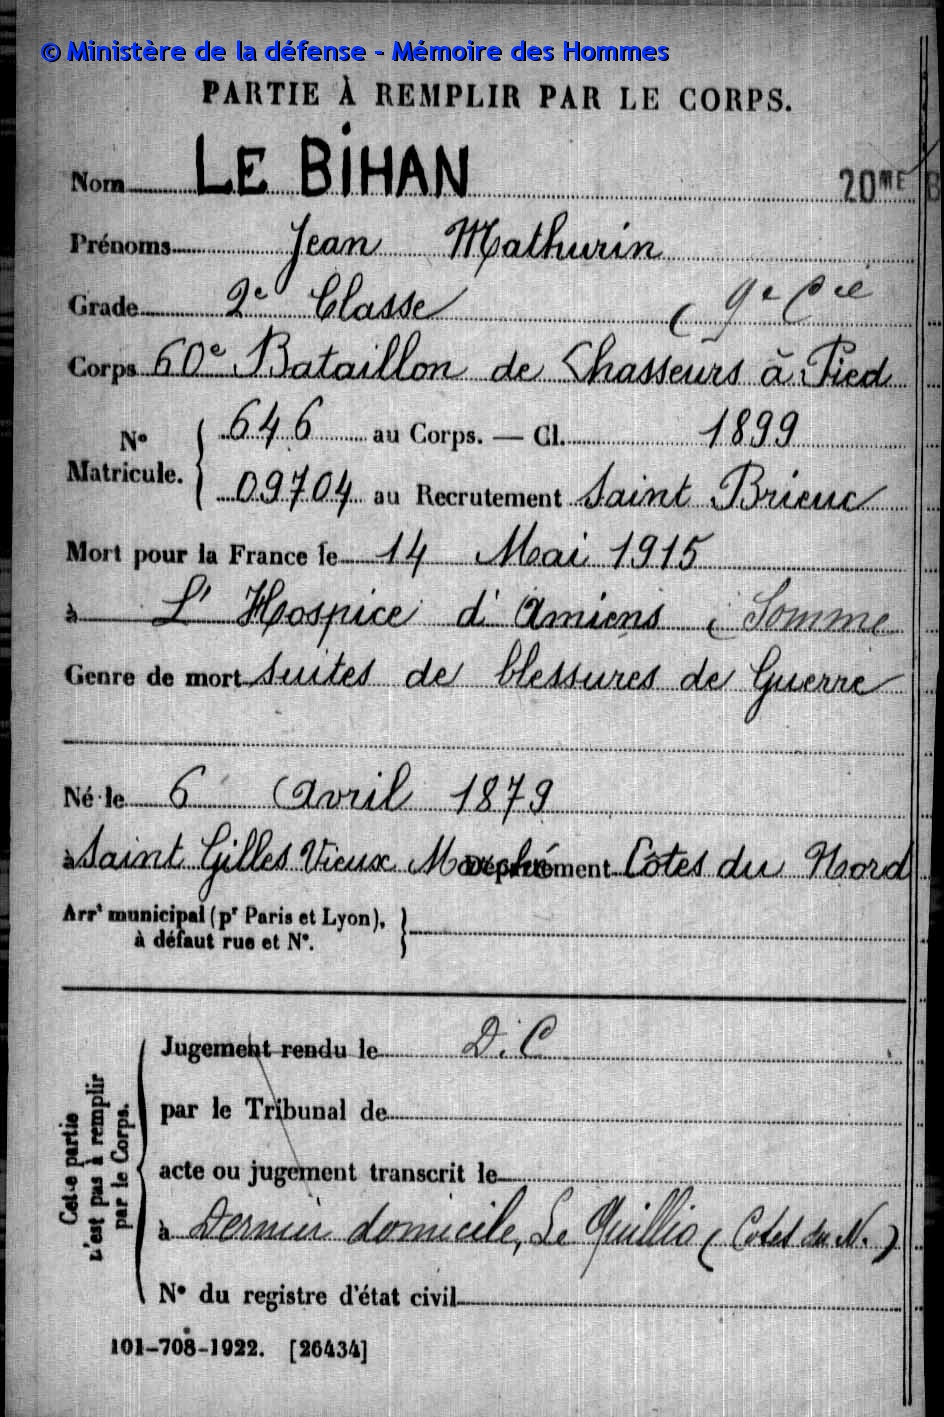 © Ministère de la défense - Mémoire des Hommes
PARTIE À REMPLIR PAR LE CORPS.
Nom LE BIHAN 20ME B
Prénoms Jean Mathurin
Grade 2e Classe ( 9e Cie
Corps 60e Bataillon de Chasseurs à Pied
No Matricule. { 646 au Corps. — Cl. 1899
09704 au Recrutement Saint Brieuc
Mort pour la France le 14 Mai 1915
à L' Hospice d'Amiens ( Somme
Genre de mort suites de blessures de Guerre
Né le 6 Avril 1879
à Saint Gilles Vieux Marché Département Côtes du Nord
Arrt municipal (pr Paris et Lyon),
à défaut rue et N°. }
Cette partie
n'est pas à remplir
par le Corps.
Jugement rendu le D. C
par le Tribunal de
acte ou jugement transcrit le
à Dernier domicile, Le Quillio ( Cotes du N. )
N° du registre d'état civil
101-708-1922. [26434]